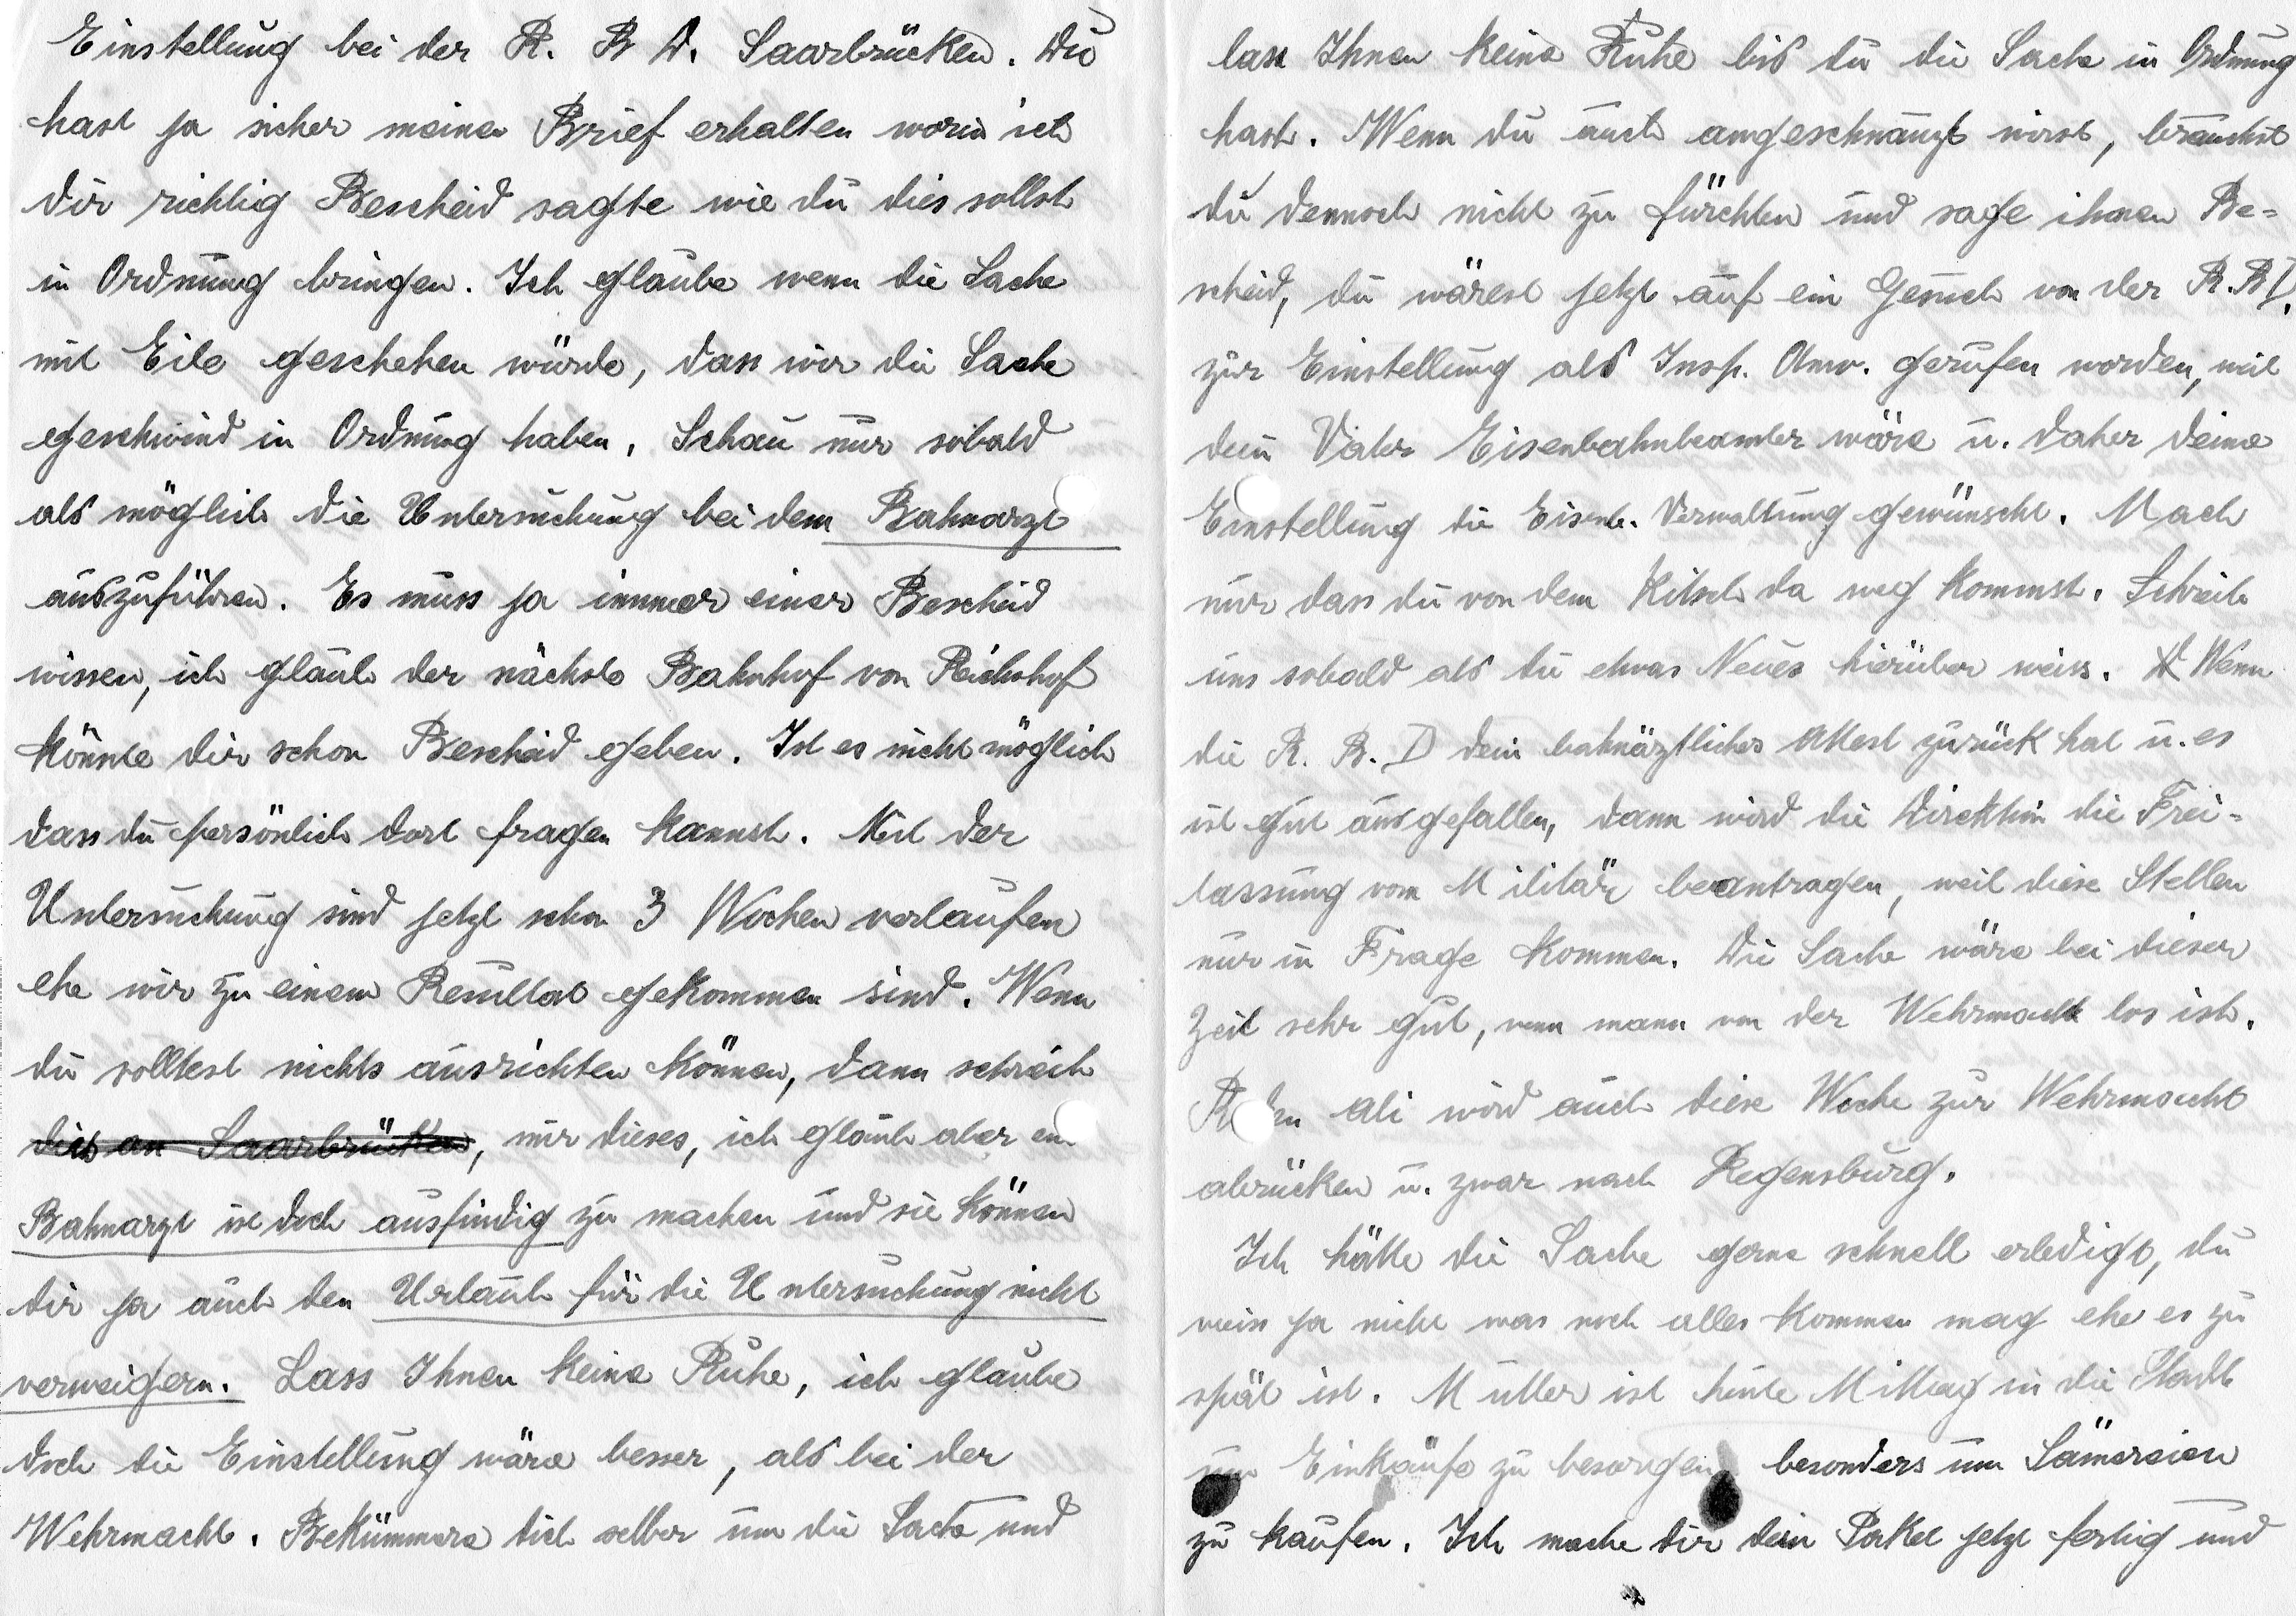 Einstellung bei der R. B D. Saarbrücken. Du
hast ja sicher meinen Brief erhalten worin ich
dir richtig Bescheid sagte wie du dies sollst
in Ordnung bringen. Ich glaube wenn die Sache
mit Eile geschehen würde, dass wir die Sache
geschwind in Ordnung haben. Schau nur sobald
als möglich die Untersuchung bei dem Bahnarzt
auszuführen. Es muss ja immer einer Bescheid
wissen, ich glaub der nächste Bahnhof von Reichshof
könnte dir schon Bescheid geben. Ist es nicht möglich
dass du persönlich dort fragen kannst. Mit der
Untersuchung sind jetzt schon 3 Wochen verlaufen
ehe wir zu einem Resultat gekommen sind. Wenn
du solltest nichts ausrichten können, dann schreib
dies an Saarbrücken, mir dieses, ich glaub aber ein
Bahnarzt ist doch ausfindig zu machen und sie können
dir ja auch den Urlaub für die Untersuchung nicht
verweigern. Lass Ihnen keine Ruhe, ich glaube
doch die Einstellung wäre besser, als bei der
Wehrmacht. Bekümmere dich selber um die Sache und
lass Ihnen keine Ruhe bis du die Sache in Ordnung
hast. Wenn du auch angeschnauzt wirst, brauchst
du dennoch nicht zu fürchten und sage ihnen Be=
scheid, du wärest jetzt auf ein Gesuch von der R.B.D.
zur Einstellung als Insp. Anw. gerufen worden, weil
dein Vater Eisenbahnbeamter wäre u. daher deine
Einstellung die Eisenb. Verwaltung gewünscht. Mach
nur dass du von dem Kitsch da weg kommst. Schreib
uns sobald als du etwas Neues hierüber weiss. Wenn
die R. B. D dein bahnärztliches Attest zurück hat u. es
ist gut ausgefallen, dann wird die Direktion die Frei=
lassung vom Militär beantragen, weil diese Stellen
nur in Frage kommen. Die Sache wäre bei dieser
Zeit sehr gut, wenn mann von der Wehrmacht los ist.
Ali wird auch diese Woche zur Wehrmacht
abrücken u. zwar nach Regensburg.
Ich hätte die Sache gerne schnell erledigt, du
weiss ja nicht was noch alles kommen mag ehe es zu
spät ist. Mutter ist heute Mittag in die Stadt
um Einkäufe zu besorgen, besonders um Sämereien
zu kaufen. Ich mache dir dein Paket jetzt fertig und